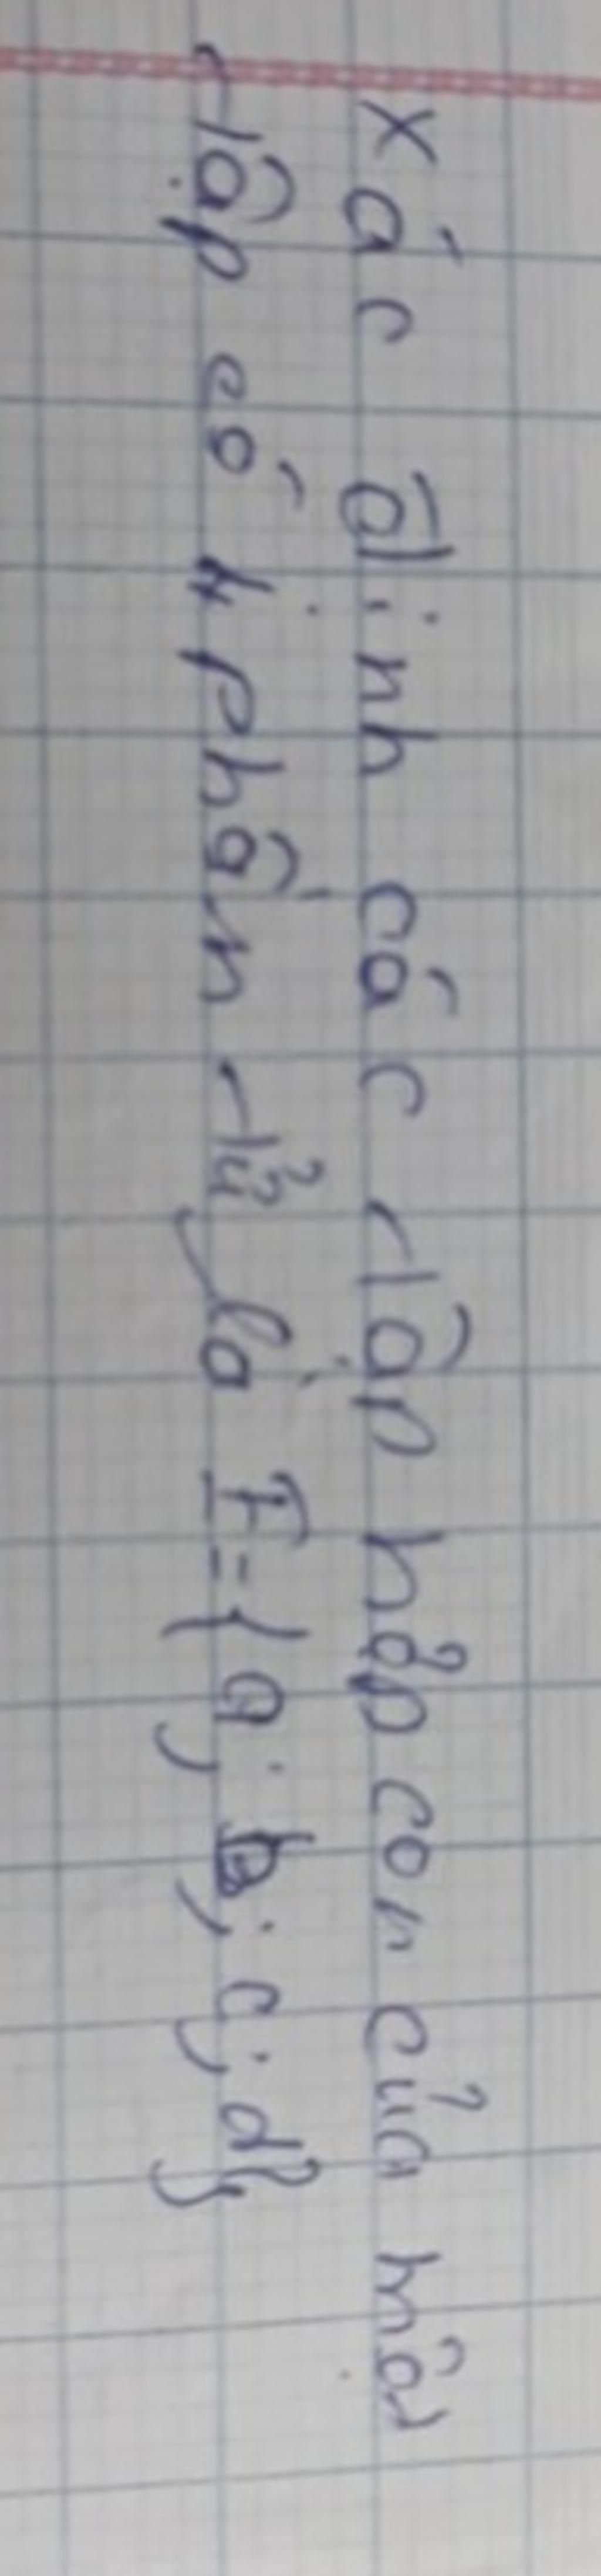 Xác định các tập hợp con của một
tập có 4 phần tử là E={a; b; c; d}